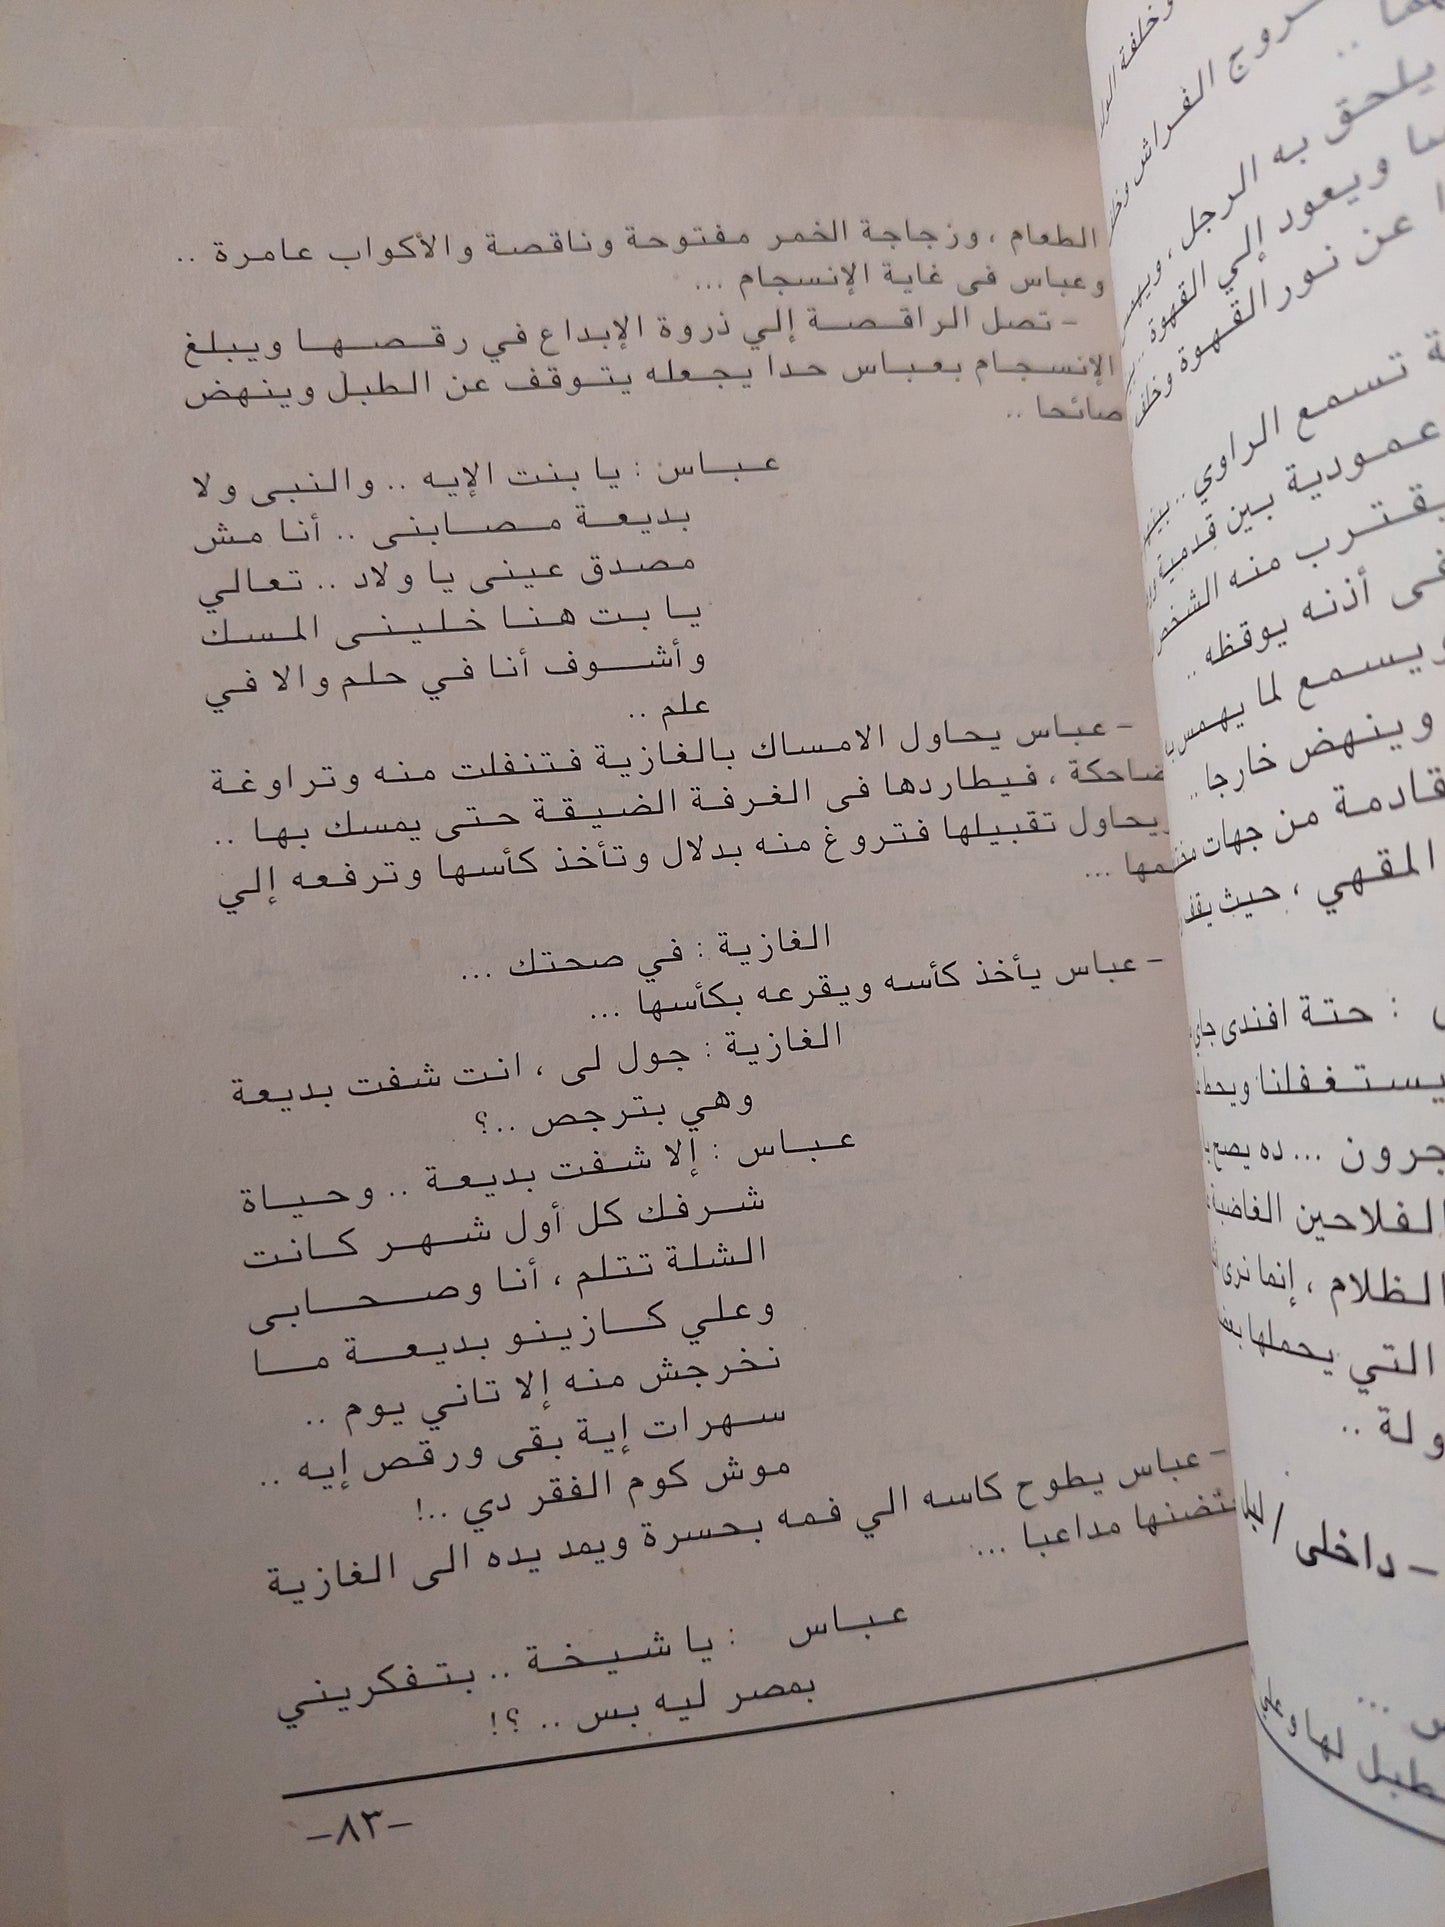 الطعام ، وزجاجة الخمر مفتوحة وناقصة والأكواب عامرة ..
وعباس فى غاية الإنسجام ...
- تصل الراقصة إلي ذروة الإبداع في رقصها ويبلغ
الإنسجام بعباس حدا يجعله يتوقف عن الطبل وينهض
صائحا ..
عباس : يا بنت الإيه .. والنبى ولا
بديعة مصابنى .. أنا مش
مصدق عينى يا ولاد .. تعالي
يا بت هنا خلينى المسك
وأشوف أنا في حلم والا في
علم ..
- عباس يحاول الامساك بالغازية فتنفلت منه وتراوغة
ضاحكة ، فيطاردها فى الغرفة الضيقة حتى يمسك بها ..
ويحاول تقبيلها فتروغ منه بدلال وتأخذ كأسها وترفعه إلي
فمها ...
الغازية : في صحتك ...
- عباس يأخذ كأسه ويقرعه بكأسها ...
الغازية : جول لى ، انت شفت بديعة
وهي بترجص ..؟
عباس : إلا شفت بديعة .. وحياة
شرفك كل أول شهر كانت
الشلة تتلم ، أنا وصحابى
وعلي كازينو بديعة ما
نخرجش منه إلا تاني يوم ..
سهرات إية بقى ورقص إيه ..
موش كوم الفقر دي ..!
- عباس يطوح كاسه الي فمه بحسرة ويمد يده الى الغازية
يحتضنها مداعبا ...
عباس : يا شيخة .. بتفكريني
بمصر ليه بس .. ؟!
-٨٣-
روج الفراش
يلحق به الرجل ،
ويعود إلي القهوة
عن نور القهوة
تسمع الراوي ..
عمودية بين قدمية
يقترب منه الشخص
فى أذنه يوقظه ..
ويسمع لما يهمس
وينهض خارجا ..
قادمة من جهات
المقهي ، حيث
: حتة افندى جاي
يستغفلنا
جرون ... ده يصح
الفلاحين الغاضبة
الظلام ، إنما نرى
التي يحملها
ولة ..
- داخلى /
طبل لها